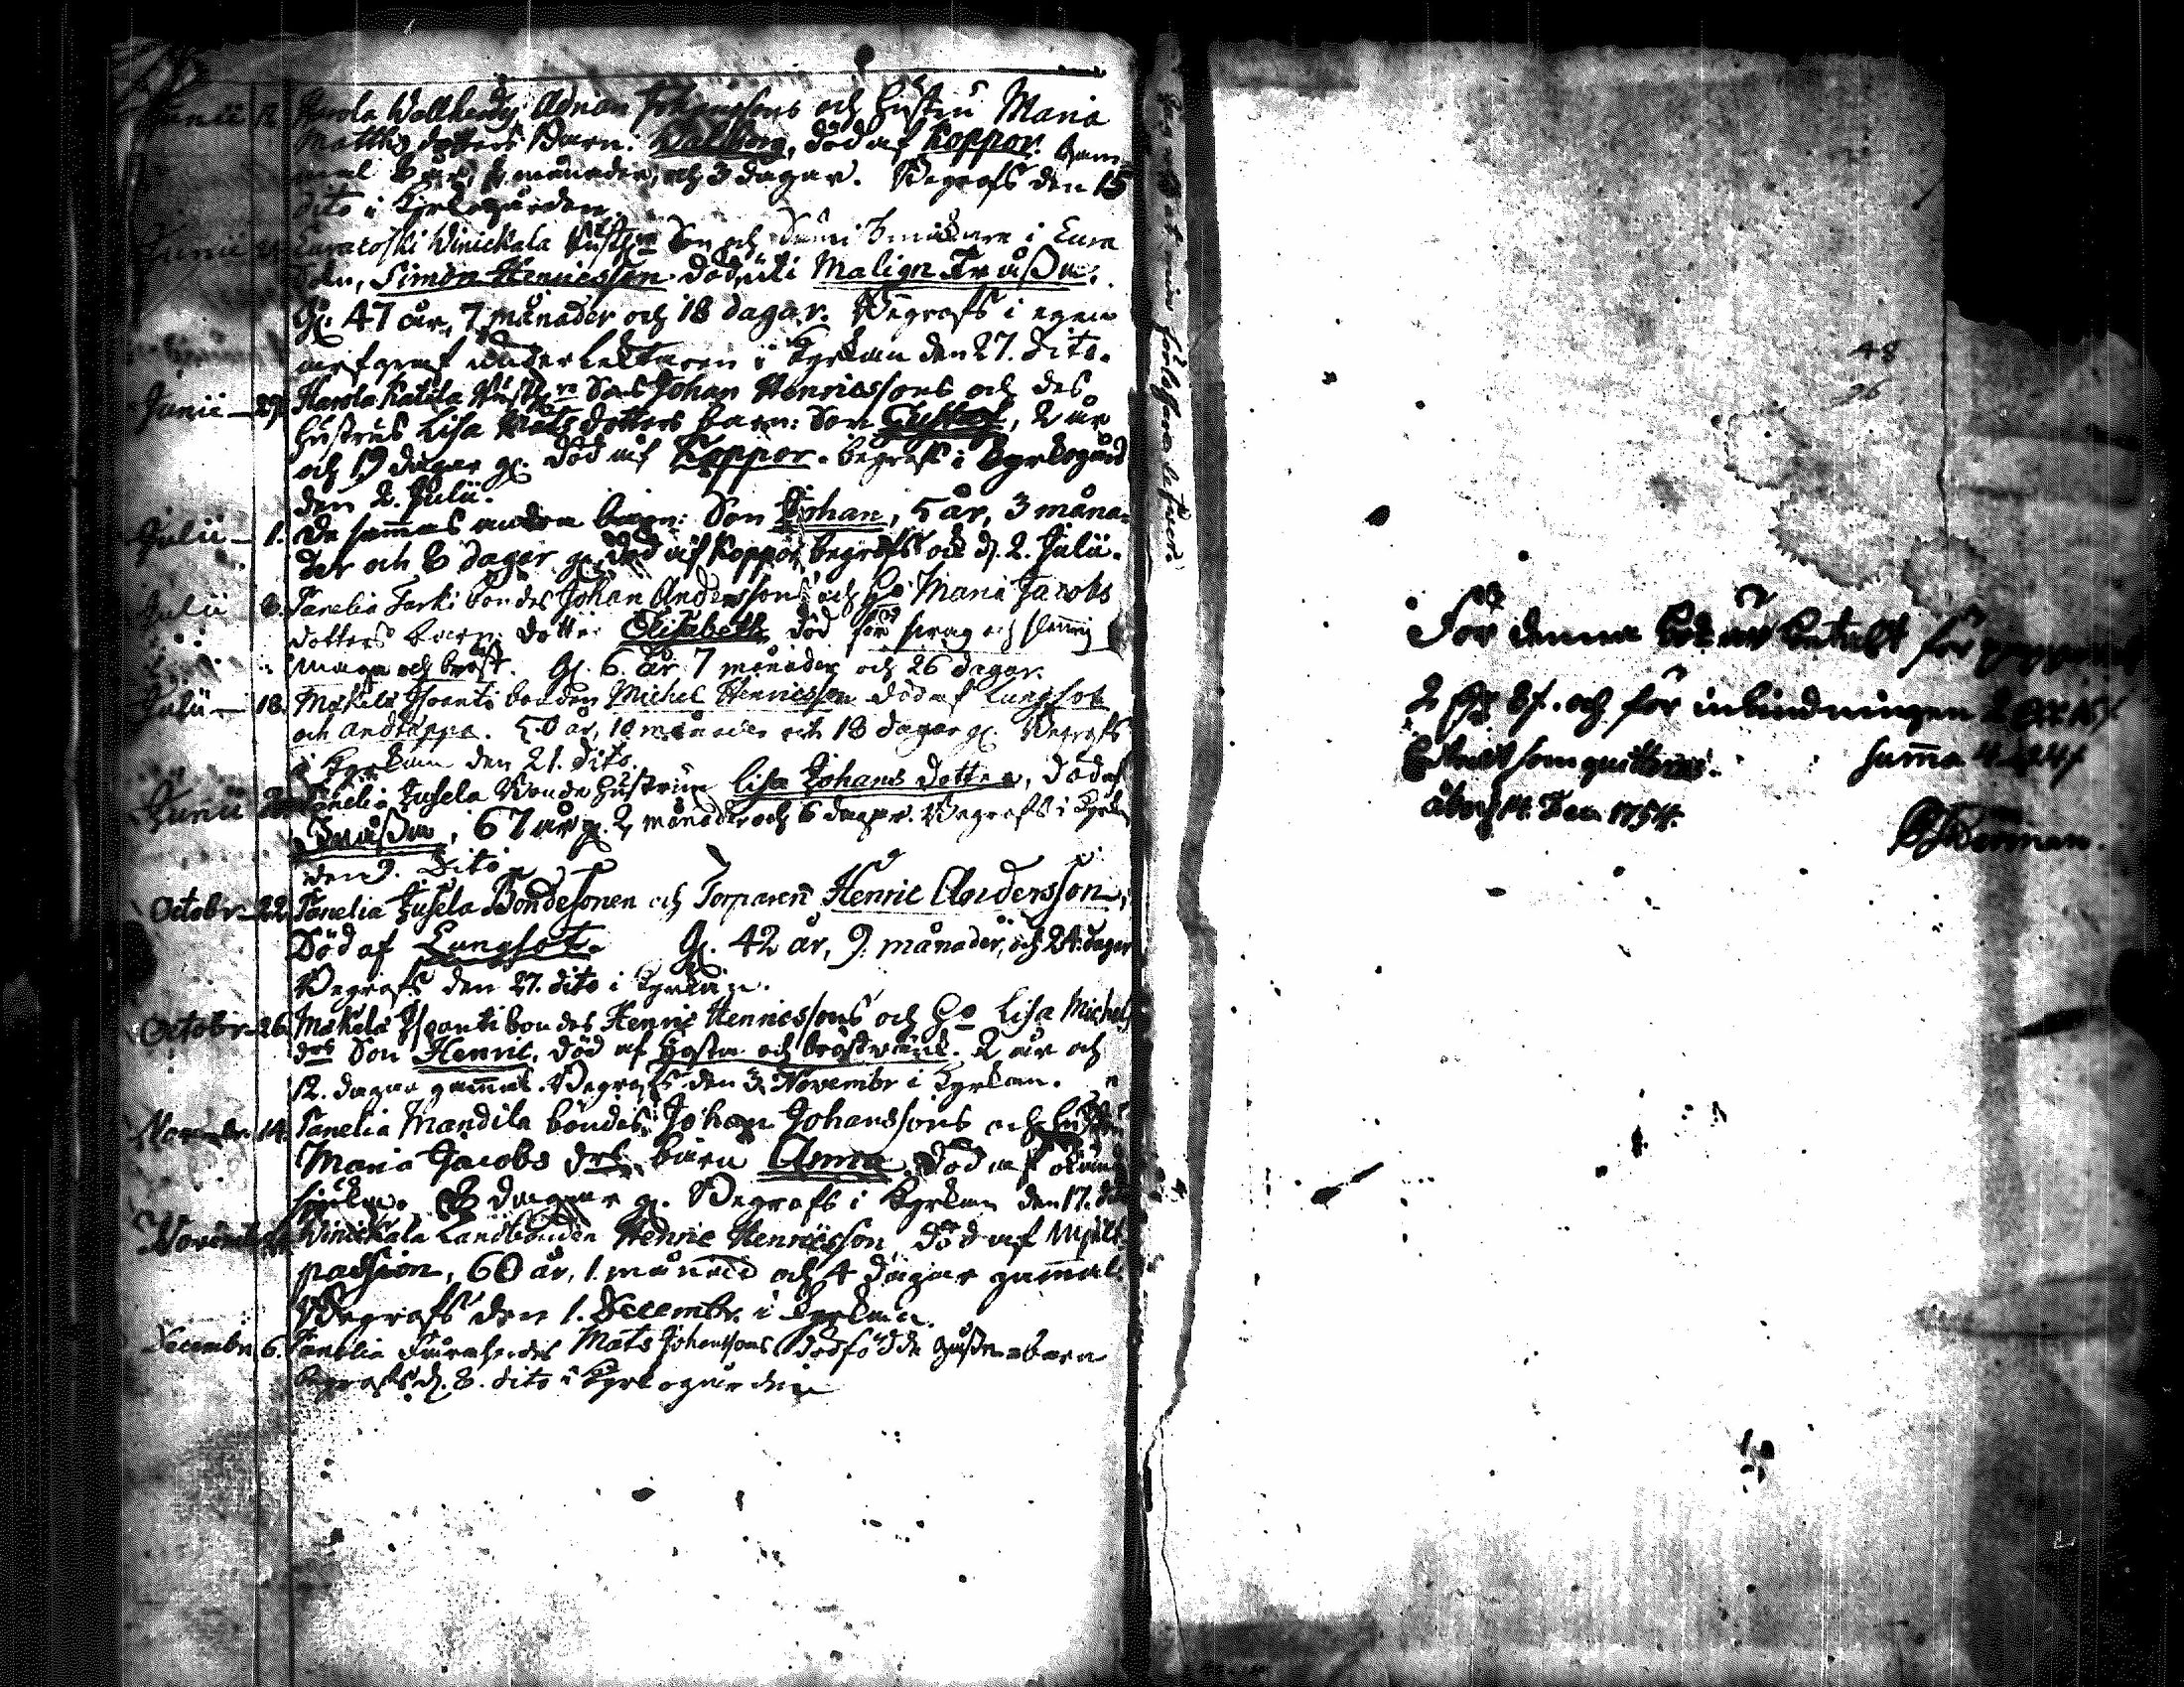 Junii 12. Harola Wallhendz Adrian Johanssons och hustru Maria
Matths dotters Barn: Walborg, död af Koppor. Gam-
mal 8 år, månader, och 3 dagar. Begrofs den 15
dito i Kyrkogården.
Junii Euracoski Winickala Rusth:ns Son och i Eura
Simon Henricsson död uti Malign Fråssa.
Gl. 47 år, 7 månader och 18 dagar. Begrofs i egen
graf under Lecktaren i Kyrkan den 27. dito.
Junii 29 Harola Katila Rusth:ns Sons Johan Henricssons och des
hustrus Lisa Mats dotters barn: Son Gustaf, 2 år
och 19 dagar gl. död af Koppor. begrofs i Kyrkogård
den 2. Julii.
Julii 1. De sammas andra barn: Son Johan, 5 år, 3 måna-
der och 8 dagar gl. död af Koppor, begrofs ock d. 2. Julii.
Julii 8. Tanelia Jarki bondes Johan Anderssons och H:o Maria Jacobs
dotters barn: dotter Elisabeth död
maga och bröst. Gl. 6 år 7 månader och 26 dagar.
Julii 18. Mäkelä Isoanti bonden Michel Henricsson död af Lungsot
och andtäppa. 50 år, 10 månader och 18 dagar gl. Begrofs
i Kyrkan den 21. dito.
Junii Tanelia Jusela Bonde hustrun Lisa Johans dotter, död af
Fråssa, 67 år gl. 2 månader och 6 dagar. Begrofs i Kyrk
den 9. Dito
Octobr. 22. Tanelia Jusela Bondesonen och Torparen Henric Andersson,
Död af Lungsot. Gl. 42 år, 9. månader, och 24. dagar
Begrofs den 27. dito i Kyrkan.
Octobr. 26. Mäkelä Isoanti bondes Henric Henricssons och H:o Lisa Michels
d:rs Son Henric, död af hosta och bröstvärk. 2 år och
12. dagar gammal. Begrofs den 3. Novembr i Kyrkan.
Novembr. 14. Tanelia Mandila bondes: Johan Johanssons och hustru
Maria Jacobs d:rs barn Anna. död af okänd
siukdom. 8 dagar gl. Begrofs i Kyrkan den 17. dito
Novemb. Winickala Landbonden Henric Henricsson död af Mjält-
passion, 60 år, 1. månad och 4 dagar gammal.
Begrofs den 1. Decembr. i Kyrkan.
Decembr. 6. Tanelia Mats Johanssons dödfödde gosse-barn
Begrofs d. 8. dito i Kyrkogården
48
26
För denna bok är betalt för papperet
2 och för inbindningen 2
som quitteras. Summa 4
åbo d. 14. Jan 1754.